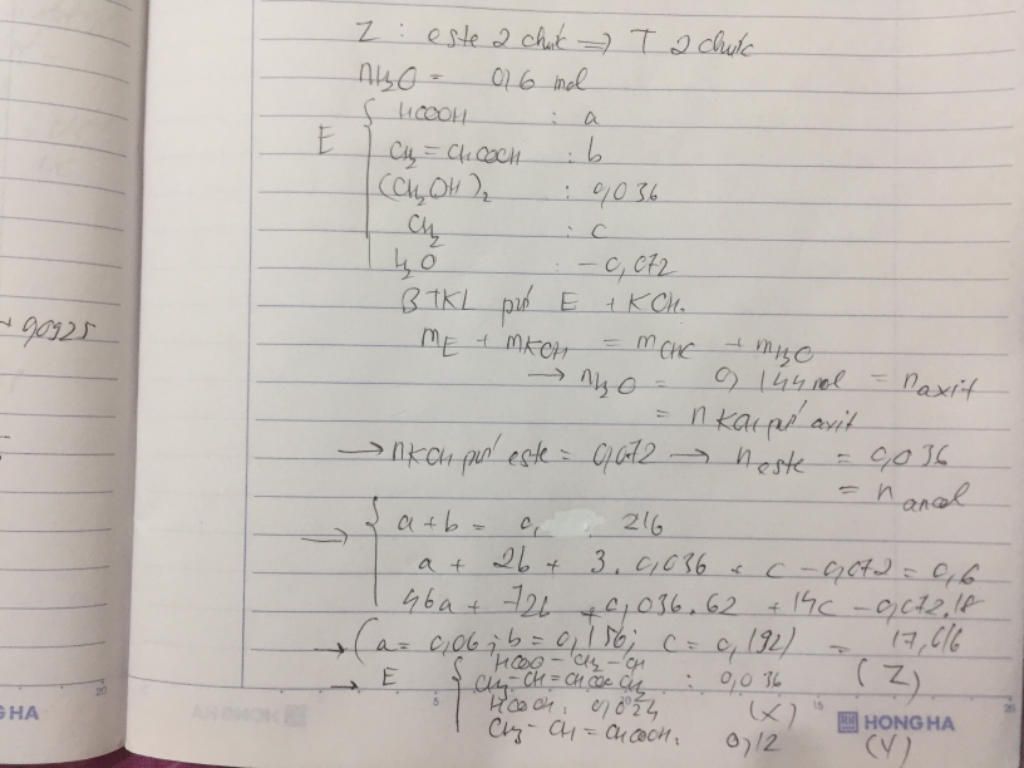 Z : este 2 chức => T 2 chức
nH2O = 0,6 mol
HCOOH : a
E
CH2 = CHCOOH : b
(CH2OH)2 : 0,036
CH2 : c
H2O : -0,072
BTKL pứ E + KOH.
mE + mKOH = mCHC + mH2O
→ nH2O = 0,144 mol = naxit
= nKOH pứ axit
→ nKOH pứ este = 0,072 → neste = 0,036
= nancol
=> a + b = 0, 216
a + 2b + 3.0,036 + c - 0,072 = 0,6
46a + 72b + 0,036.62 + 14c - 0,072.18
→ (a = 0,06 ; b = 0,156 ; c = 0,192) = 17,616
HCOO - CH2 - CH
→ E CH3-CH=CHCOO CH2 : 0,036 (Z)
HCOOH : 0,024 (X)
CH3 - CH = CHCOOH : 0,12 (Y)
90925
20
5
10
15
20
HONG HA
HONG HA